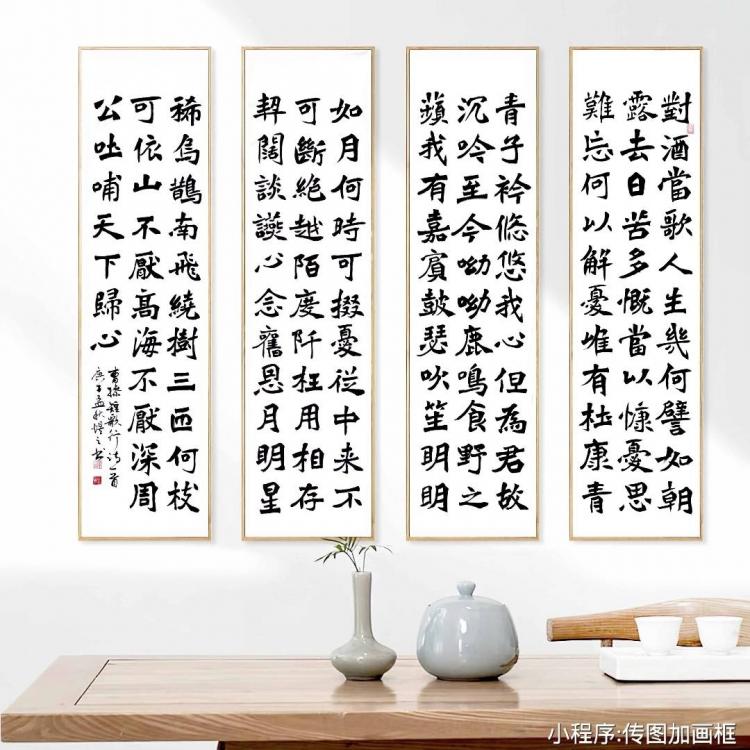 對酒當歌人生幾何譬如朝
露去日苦多慨當以慷憂思
難忘何以解憂唯有杜康青
青子衿悠悠我心但為君故
沉吟至今呦呦鹿鳴食野之
蘋我有嘉賓鼓瑟吹笙明明
如月何時可掇憂從中来不
可斷絕越陌度阡枉用相存
契闊談讌心念舊恩月明星
稀烏鵲南飛繞樹三匝何枝
可依山不厭高海不厭深周
公吐哺天下歸心
曹操短歌行詩一首
庚子孟秋之書
小程序:传图加画框